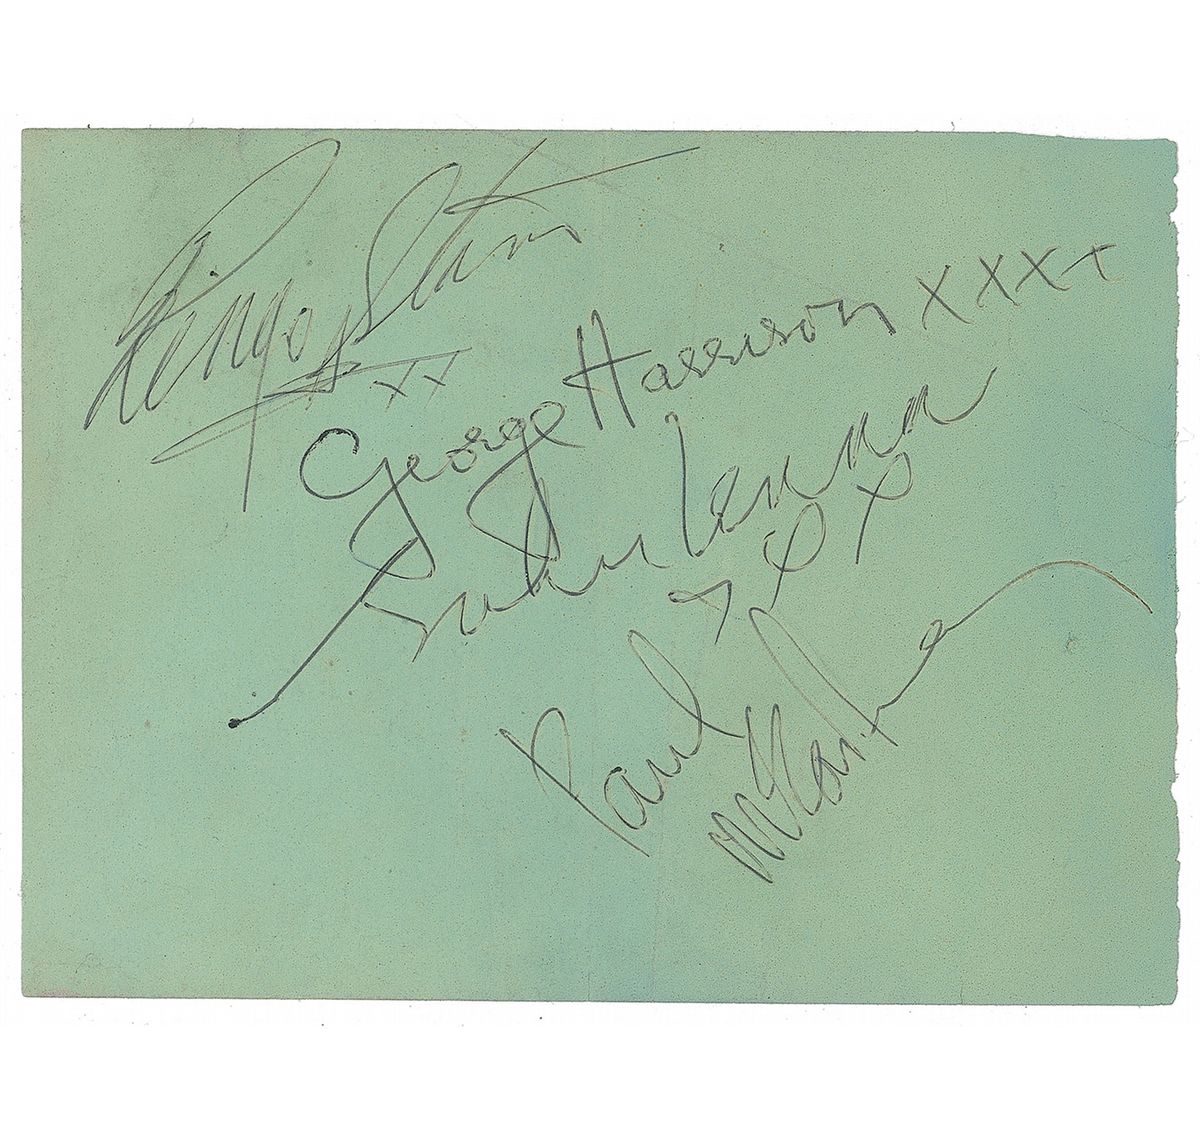 Ringo Starr
xx
George Harrison xxxx
John Lennon
xxx
Paul
McCartney